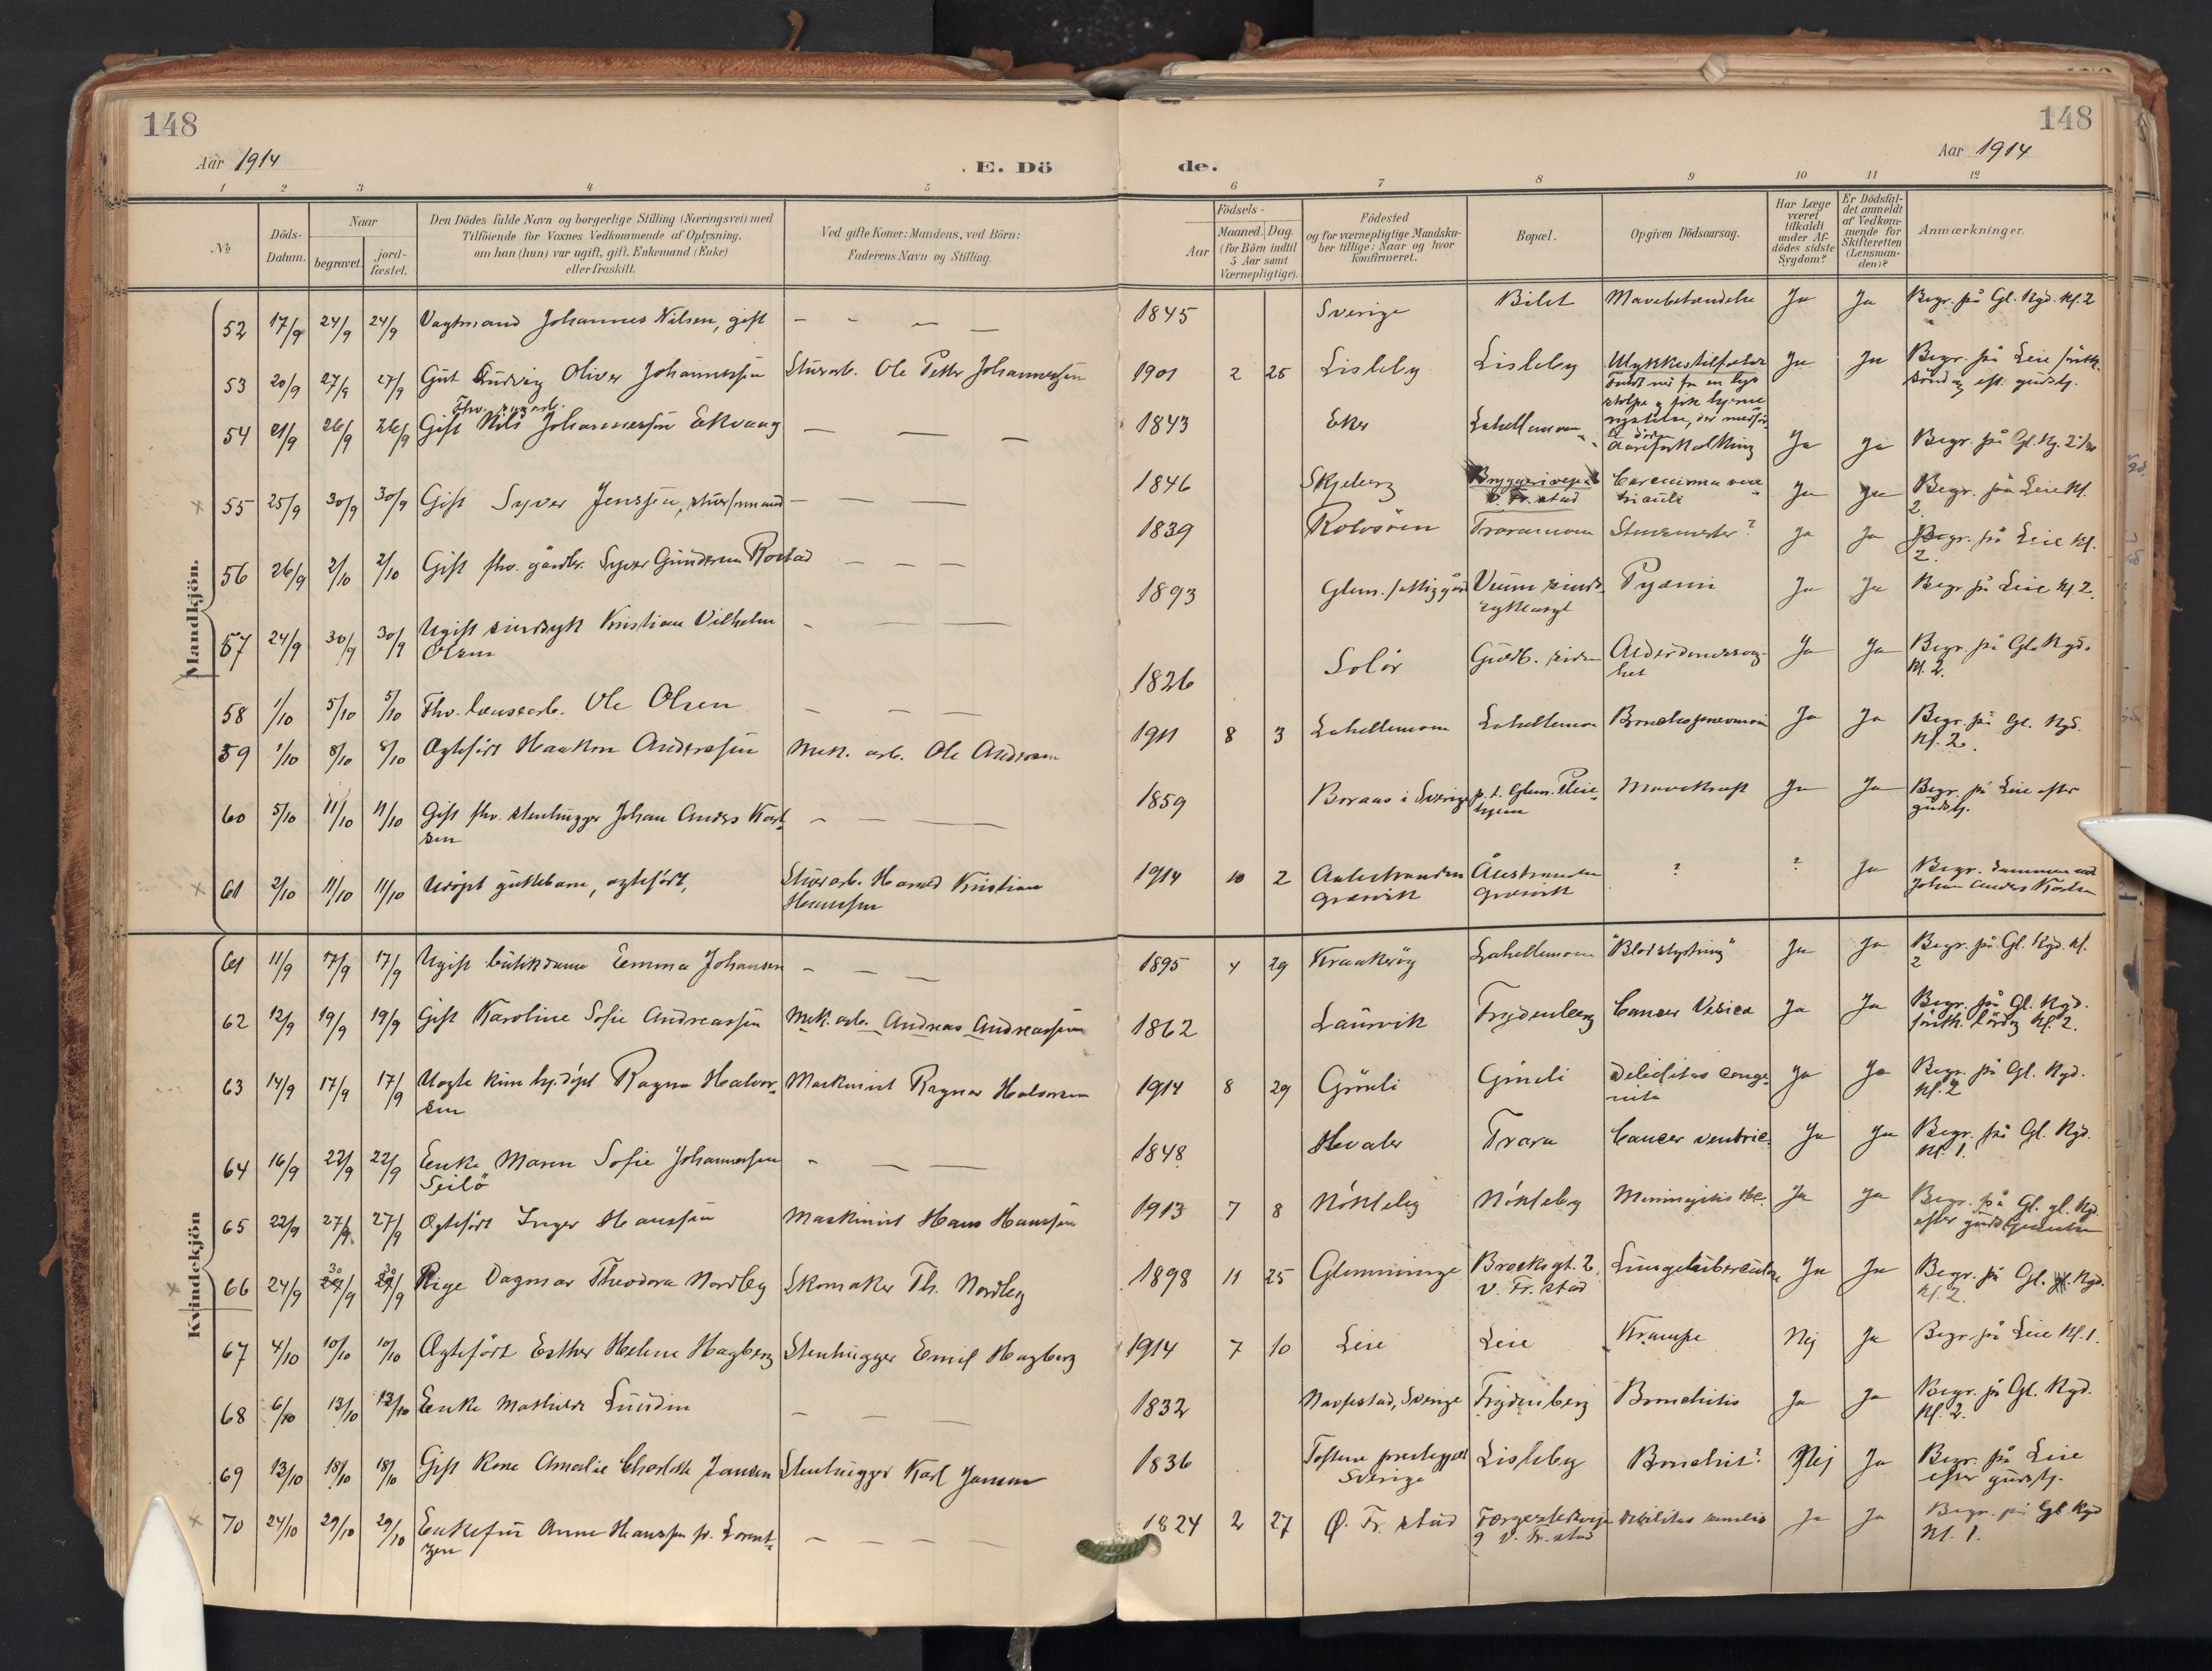 148
148
Aar 1914
E. Dö
de.
Aar 1914
1 2 3 4 5 6 7 8 9 10 11 12
No
Döds-
Datum.
Naar
begravet.
jord-
fæstet.
Den Dödes fulde Navn og borgerlige Stilling (Næringsvei) med
Tilföiende for Voxnes Vedkommende af Oplysning,
om han (hun) var ugift, gift, Enkemand (Enke)
eller fraskilt.
Ved gifte Koner: Mandens, ved Börn:
Faderens Navn og Stilling.
Födsels-
Aar
Maaned. Dag.
(for Börn indtil
5 Aar samt
Værnepligtige).
Födested
og for værnepligtige Mandska-
ber tillige: Naar og hvor
konfirmeret.
Bopæl.
Opgiven Dödsaarsag.
Har Læge
været
tilkaldt
under Af-
dödes sidste
Sygdom?
Er Dödsfal-
det anmeldt
af Vedkom-
mende for
Skifteretten
(Lensman-
den)?
Anmærkninger.
Mandkjön.
52 17/9 24/9 24/9 Vagtmand Johannes Nilsen, gift — — — — 1845 Sverige Bilet Mavebetændelse Ja Ja Begr. på Gl. Kgd. Kl. 2
53 20/9 27/9 27/9 Gut Ludvig Oliver Johannessen Stuearb. Ole Petter Johannessen 1901 2 25 Lisleby Lisleby Ulykkestilfælde Ja Ja Begr. på Leie
söndag eft. gudstj.
Faldt ned fra en lys
stolpe og fik hjerne
rystelse, der medför
te döden
54 21/9 26/9 26/9 Gift Nils Johannessen Ekvaag — — — 1843 Eker Lahellemoen Aareforkalkning Ja Ja Begr. på Gl. Kg.
Fhv.
55 25/9 30/9 30/9 Gift Syver Jenssen, — — — 1846 Skjeberg Bryggeriveien
V. Fr.stad Carcinoma ven
triculi Ja Ja Begr. på Leie Kl.
2.
56 26/9 2/10 2/10 Gift fhv. gårdbr. Syver Gundersen Rostad — — — 1839 Rolvsöen Traramoen ? Ja Ja Begr. på Leie Kl.
2.
57 24/9 30/9 30/9 Ugift sindsyk Kristian Vilhelm
Olsen — — — 1893 Glem. fattiggård Veum sinds-
sykeasyl Pyæmi Ja Ja Begr på Leie Kl. 2.
58 1/10 5/10 5/10 Fhv. lænsearb. Ole Olsen — — — 1826 Solör Gudb. siden Alderdomssvag-
het Ja Ja Begr. på Gl. Kgd.
Kl. 2.
59 1/10 8/10 8/10 Ægtefödt Haakon Anderssen Mek. arb. Ole Andersen 1911 8 3 Lahellemoen Lahellemoen Bronchopneumoni Ja Ja Begr. på Gl. Kgd.
Kl. 2.
60 5/10 11/10 11/10 Gift fhv. stenhugger Johan Anders Karl-
sen — — — 1859 Boraas i Sverige p. t. Glem. Pleie-
hjem Mavekræft Ja Ja Begr. på Leie efter
gudstj.
61 2/10 11/10 11/10 Udöpt guttebarn, ægtefödt, Stuearb. Harald Kristian
Hanssen 1914 10 2 Aalestranden
Græsvik Ålestranden
Græsvik ? ? Ja Begr. sammen med
Johan Anders Karlsen
Kvindekjön
61 11/9 17/9 17/9 Ugift butikdame Emma Johansen — — — 1895 4 29 Kraakeröy Lahellemoen "Blodstyrtning" Ja Ja Begr. på Gl. Kgd. Kl.
2
62 12/9 19/9 19/9 Gift Karoline Sofie Andreassen Mek. arb. Andreas Andreassen 1862 Laurvik Frydenberg Cancer Vesica Ja Ja Begr. på Gl. Kgd.
lördag Kl. 2.
63 14/9 17/9 17/9 Uægte hj.döpt Ragna Halvor-
sen Maskinist Ragnar Halvorsen 1914 8 29 Grönli Grönli Debilitas conge-
nita Ja Ja Begr. på Gl. Kgd.
Kl. 2
64 16/9 22/9 22/9 Enke Maren Sofie Johannessen
Seilö — — — 1848 Hvaler Trara Cancer ventric. Ja Ja Begr. på Gl. Kgd.
Kl. 1.
65 22/9 27/9 27/9 Ægtefödt Inger Hanssen Maskinist Hans Hanssen 1913 7 8 Nökleby Nökleby Meningitis tbc. Ja Ja Begr. på Gl. gl. Kgd.
efter gudstjenesten
66 24/9 30/9 30/9 Pige Dagmar Theodora Nordby Skomaker Th. Nordby 1898 11 25 Glemminge Brocksgt. 2
V. Fr.stad Lungetuberculose Ja Ja Begr. på Gl. Kgd.
Kl. 2.
67 4/10 10/10 10/10 Ægtefödt Esther Helene Hagberg Stenhugger Emil Hagberg 1914 7 10 Leie Leie Krampe Nej Ja Begr på Leie Kl. 1.
68 6/10 13/10 13/10 Enke Mathilde Lundin — — — 1832 Sverige Frydenberg Bronchitis Ja Ja Begr. på Gl. Kgd.
Kl. 2.
69 13/10 18/10 18/10 Gift Kone Amalie Charlotte Jansen Stenhugger Karl Jansen 1836
Sverige Lisleby Bronchit? Nej Ja Begr. på Leie
efter gudstj.
70 24/10 29/10 29/10 Enkefru Anne Hanssen f. Lorent-
zen — — — — 1824 2 27 Ø. Fr.stad
9 V. Fr.stad Debilitas senilis Ja Ja Begr. på Gl. Kgd
Kl. 1.